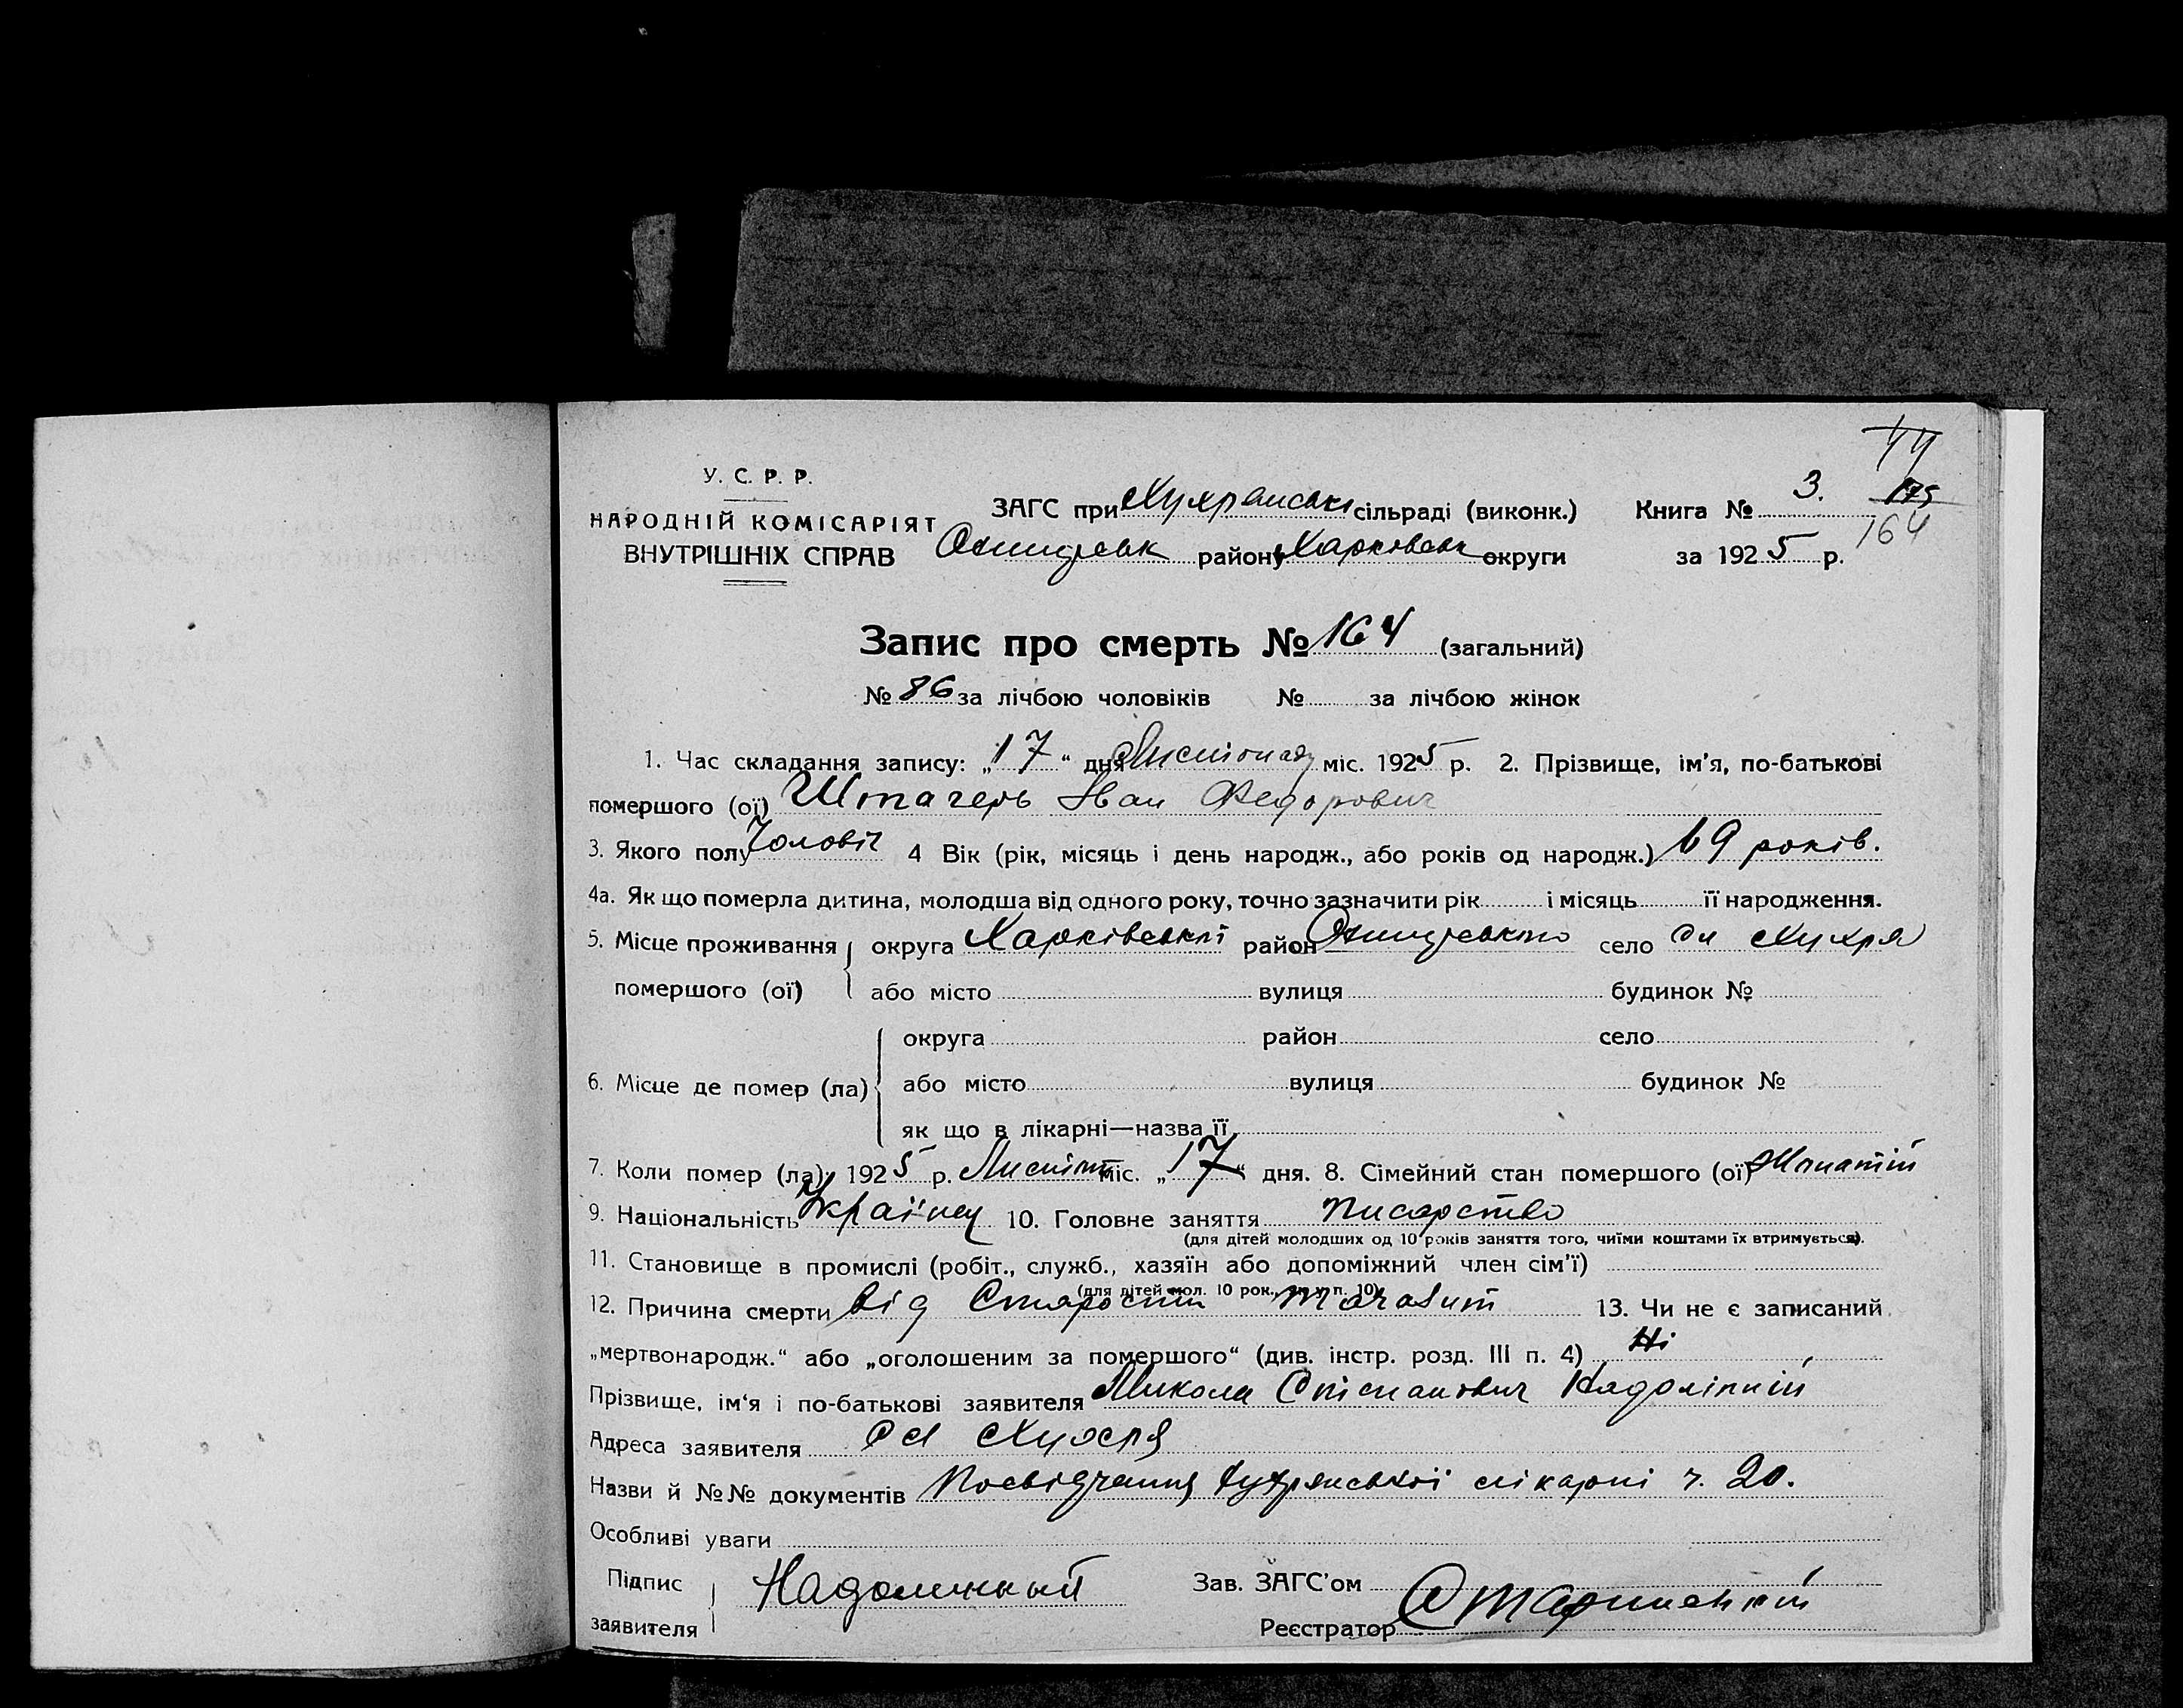 У. С. Р. Р.
НАРОДНІЙ КОМІСАРІЯТ
ВНУТРІШНІХ СПРАВ
ЗАГС при Хухранські сільраді (виконк.)
Охтирськ району Харковськ округи
Книга № 3.
за 1925 р.
175
164
Запис про смерть № 164 (загальний)
№ 86 за лічбою чоловіків № за лічбою жінок
1. Час складання запису: „17“ дня Листопаду міс. 1925 р. 2. Прізвище, ім'я, по-батькові
помершого (ої) Штагерь Іван Федорович
3. Якого полу Чоловіч 4 Вік (рік, місяць і день народж., або років од народж.) 69 років.
4а. Як що померла дитина, молодша від одного року, точно зазначити рік і місяць її народження.
5. Місце проживання округа Харківської район Охтирського село Сл Хухря
помершого (ої) або місто вулиця будинок №
округа район село
6. Місце де помер (ла) або місто вулиця будинок №
як що в лікарні—назва її
7. Коли помер (ла) 1925 р. Листоп міс. „17“ дня. 8. Сімейний стан помершого (ої) Жонатій
9. Національність Українец 10. Головне заняття писарство
(для дітей молодших од 10 років заняття того, чиїми коштами їх втримується).
11. Становище в промислі (робіт., служб., хазяїн або допоміжний член сім'ї)
(для дітей мол. 10 рок., як у п. 10)
12. Причина смерти від Старости 13. Чи не є записаний
„мертвонародж.“ або „оголошеним за помершого“ (див. інстр. розд. III п. 4) Ні
Прізвище, ім'я і по-батькові заявителя Микола Степанович Надолішній
Адреса заявителя Сл Хухря
Назви й №№ документів Посвідчання Хухрянської лікарні ч. 20.
Особливі уваги
Підпис заявителя Надолишный
Зав. ЗАГС'ом
Реєстратор